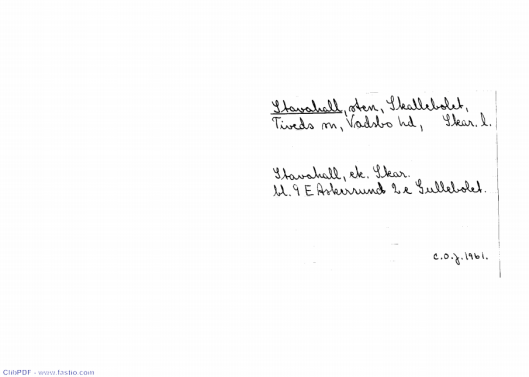 Stavahall, sten, Skallebolet,
Tiveds sn, Vadsbo hd, Skar. l.
Stavahall, ek. Skar.
bl. 9 E Askersund 2 e Gullebolet.
C.O.J. 1961.
ClibPDF - www.fastio.com